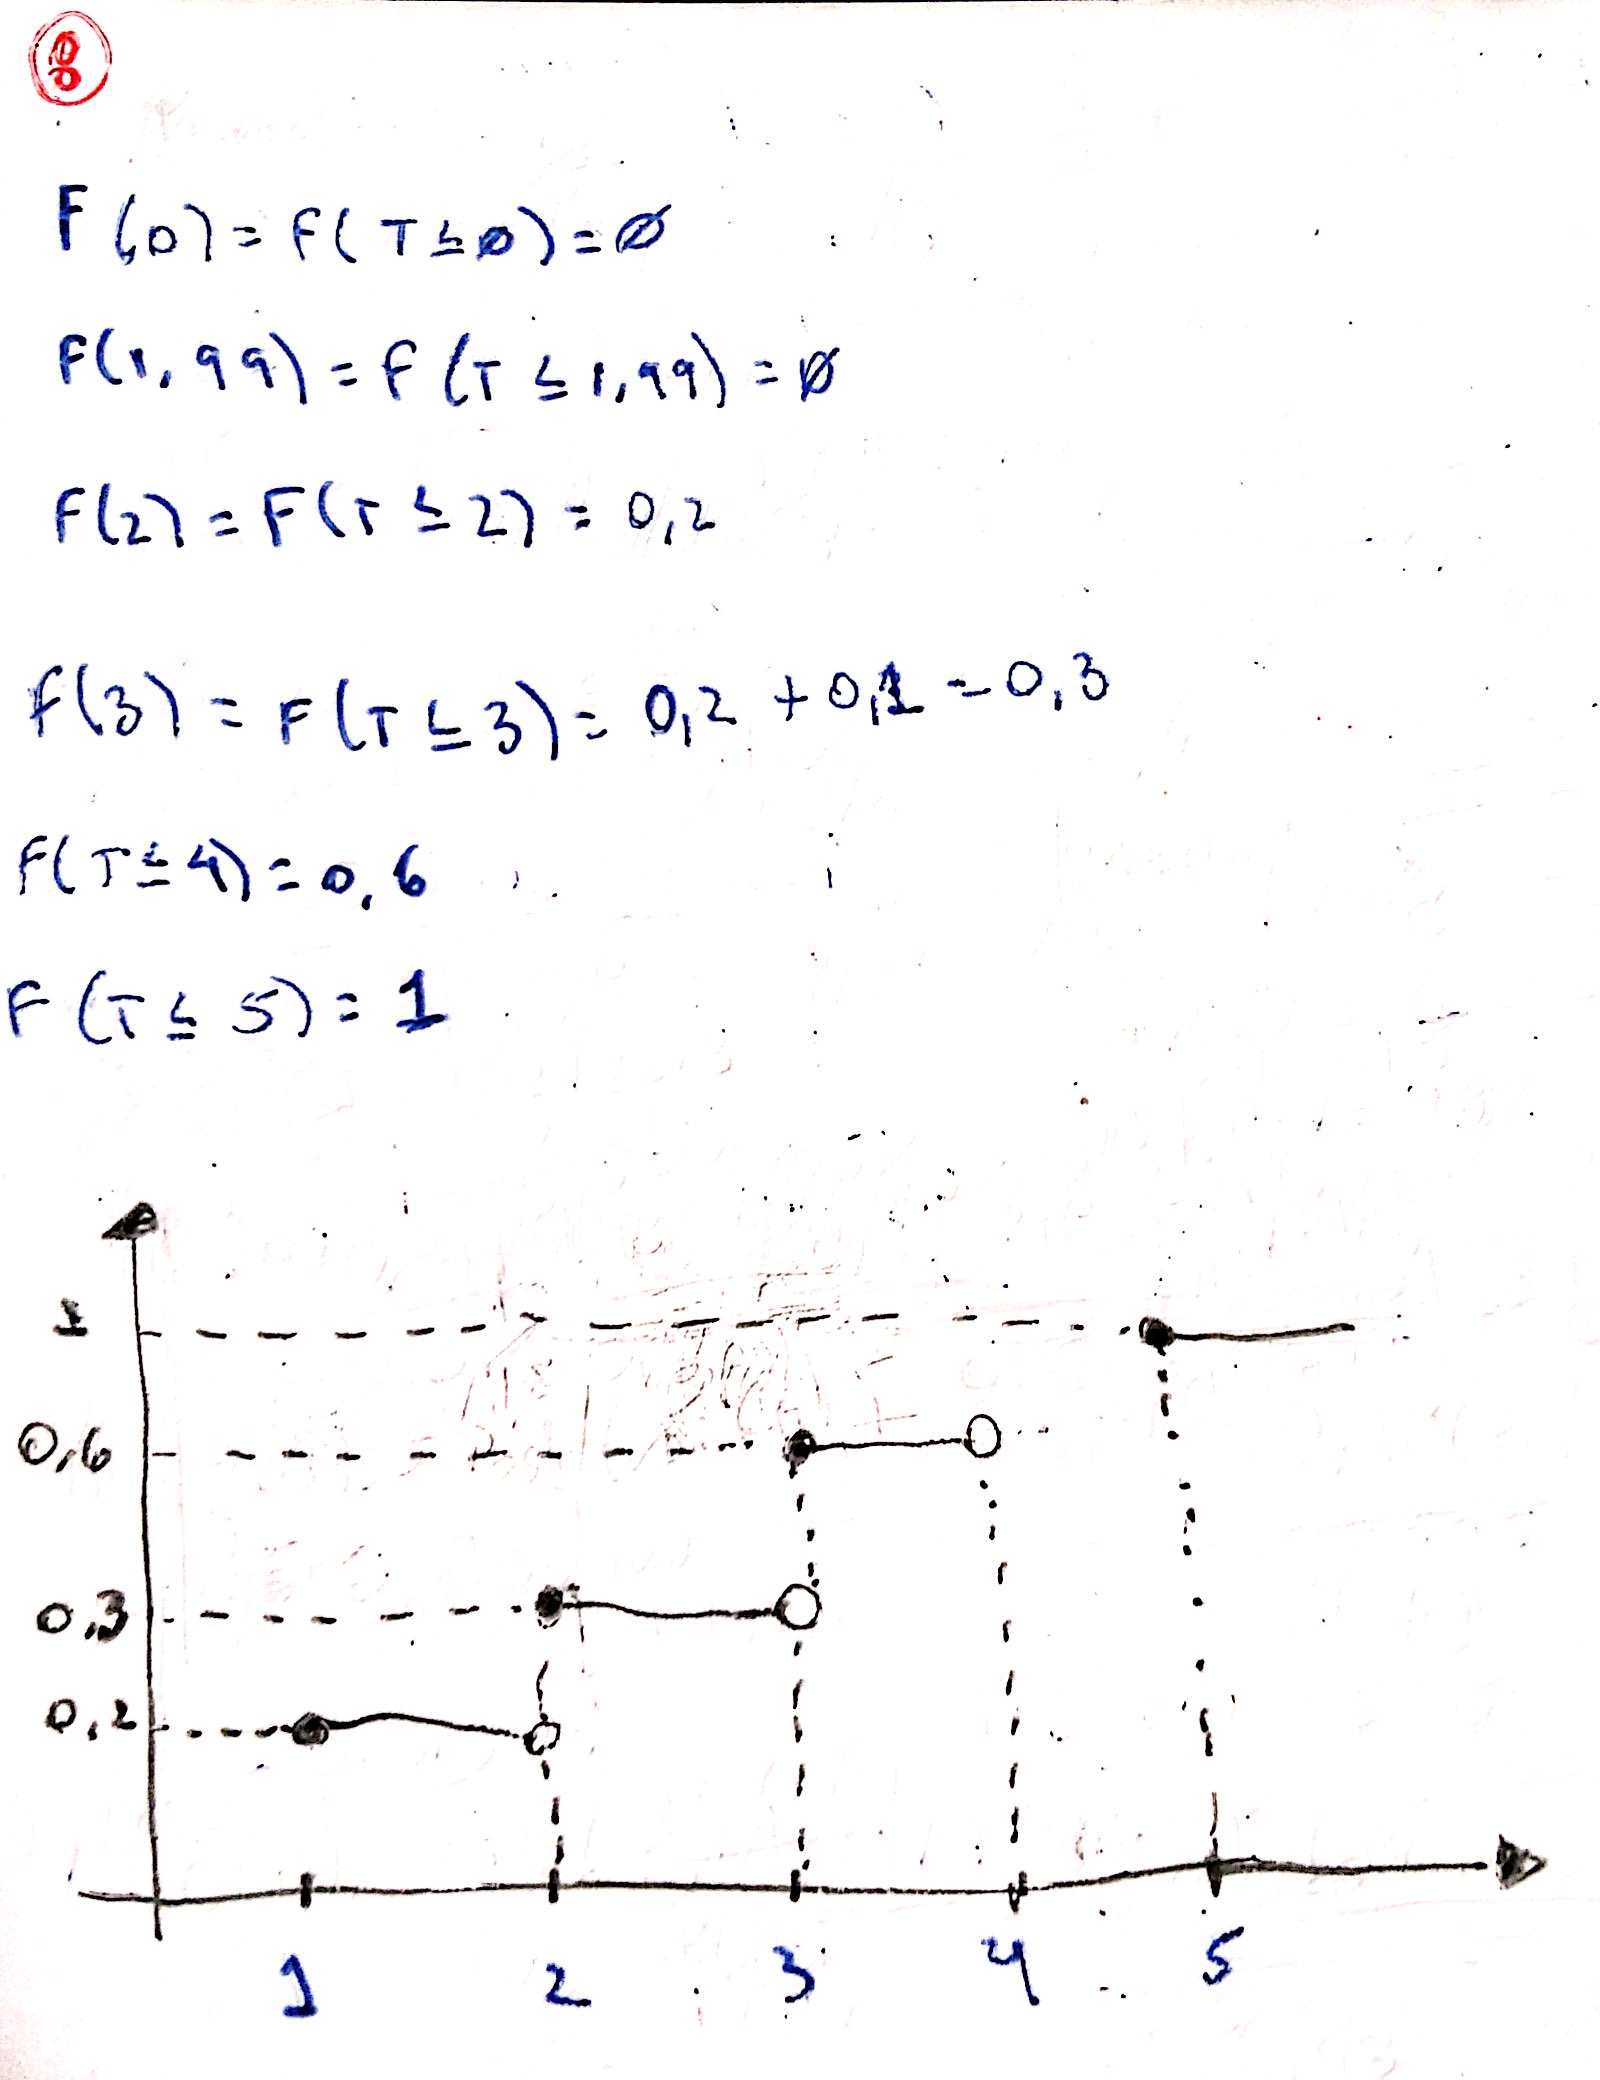 8
F(0) = F(T ≤ 0) = Ø
F(1,99) = F(T ≤ 1,99) = Ø
F(2) = F(T ≤ 2) = 0,2
F(3) = F(T ≤ 3) = 0,2 + 0,1 = 0,3
F(T ≤ 4) = 0,6
F(T ≤ 5) = 1
1
0,6
0,3
0,2
1 2 3 4 5